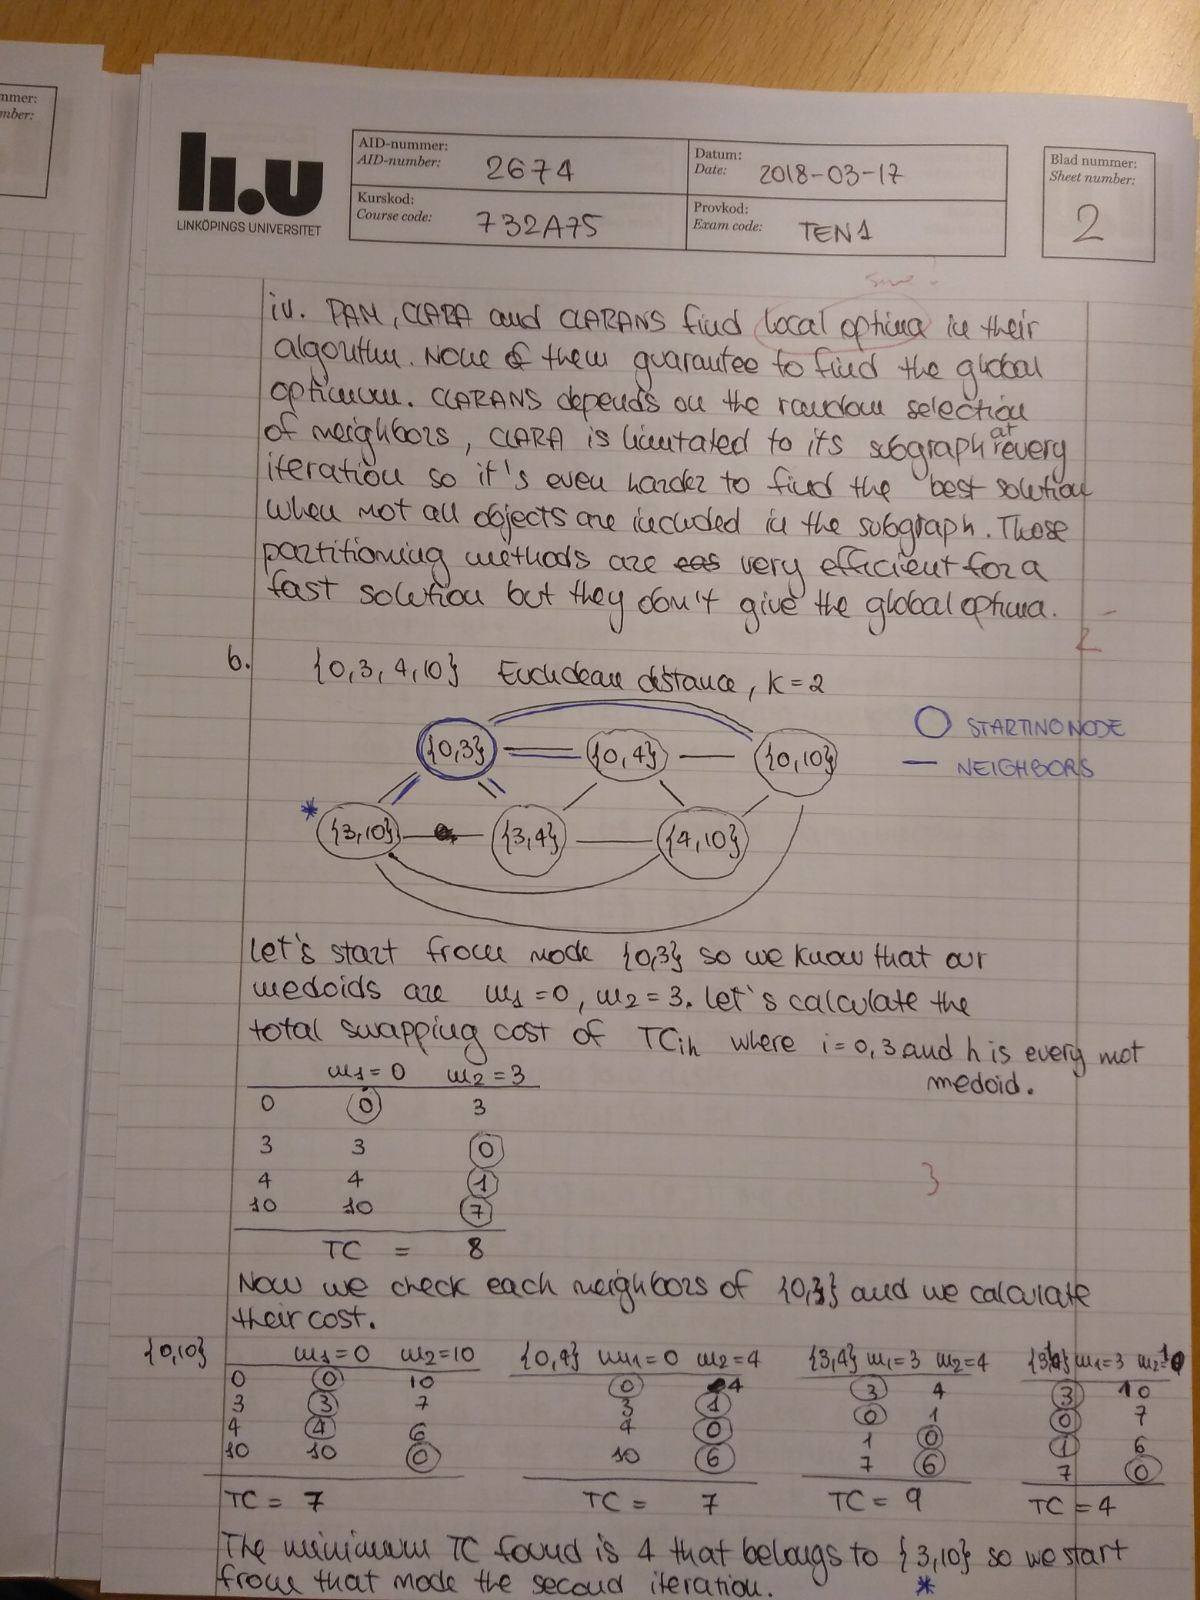 mmer:
mber:
li.u
LINKÖPINGS UNIVERSITET
AID-nummer:
AID-number: 2674
Datum:
Date: 2018-03-17
Blad nummer:
Sheet number:
2
Kurskod:
Course code: 732A75
Provkod:
Exam code: TEN1
iv. PAM, CLARA and CLARANS find local optima in their
algorithm. None of them guarantee to find the global
optimum. CLARANS depends on the random selection
of neighbors, CLARA is limitated to its subgraph at every
iteration so it's even harder to find the best solution
when not all objects are included in the subgraph. Those
partitioning methods are very efficient for a
fast solution but they don't give the global optima.
2
b. {0,3,4,10} Euclidean distance, K=2
{0,3} {0,4} {0,10}
STARTING NODE
NEIGHBORS
* {3,10} {3,4} {4,10}
Let's start from node {0,3} so we know that our
medoids are m1=0, m2=3. Let's calculate the
total swapping cost of TCih where i=0,3 and h is every not
medoid.
m1=0 m2=3
0 0 3
3 3 0
4 4 1
3
10 10 7
TC = 8
Now we check each neighbors of {0,3} and we calculate
their cost.
{0,10} m1=0 m2=10 {0,4} m1=0 m2=4 {3,4} m1=3 m2=4 {3,10} m1=3 m2=10
0 0 10 0 4 3 4 3 10
3 3 7 3 1 0 1 0 7
4 4 6 4 0 1 0 1 6
10 10 0 10 6 7 6 7 0
TC = 7 TC = 7 TC = 9 TC = 4
The minimum TC found is 4 that belongs to {3,10} so we start
from that node the second iteration. *